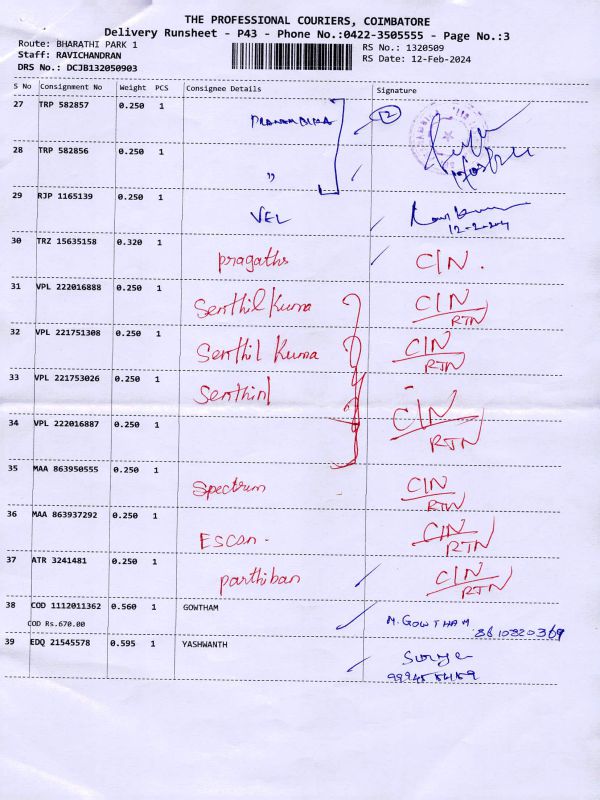 THE PROFESSIONAL COURIERS, COIMBATORE
Delivery Runsheet - P43 - Phone No.:0422-3505555 - Page No.:3
Route: BHARATHI PARK 1 RS No.: 1320509
Staff: RAVICHANDRAN RS Date: 12-Feb-2024
DRS No.: DCJB132050903
S No Consignment No Weight PCS Consignee Details Signature
27 TRP 582857 0.250 1
12
28 TRP 582856 0.250 1 "
29 RJP 1165139 0.250 1 VEL
12-2-2024
30 TRZ 15635158 0.320 1 pragaths C/N.
31 VPL 222016888 0.250 1 Senthil Kuma C/N
RTN
32 VPL 221751308 0.250 1 Senthil Kuma C/N
RTN
33 VPL 221753026 0.250 1 C/N
34 VPL 222016887 0.250 1 RTN
35 MAA 863950555 0.250 1 Spectrum C/N
RTN
36 MAA 863937292 0.250 1 Escon. C/N
RTN
37 ATR 3241481 0.250 1 parthiban C/N
RTN
38 COD 1112011362 0.560 1 GOWTHAM
COD Rs.670.00 M.GOWTHAM
39 EDQ 21545578 0.595 1 YASHWANTH Surya